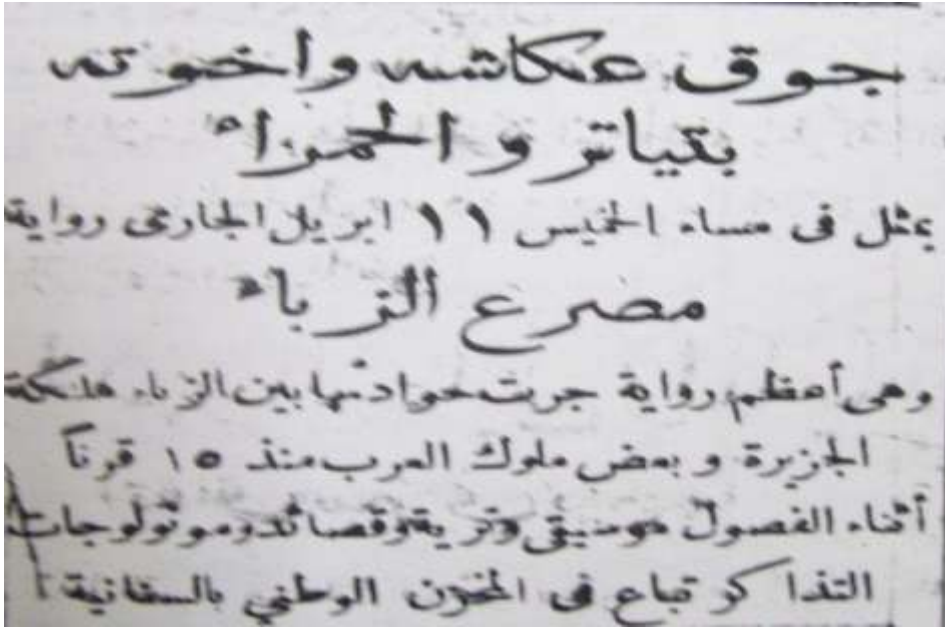 جوق عكاشه واخوته
بتياترو الحمراء
يمثل فى مساء الخميس ١١ ابريل الجارى رواية
مصرع الزباء
وهى أعظم رواية جرت حوادثها بين الزباء ملكة
الجزيرة وبعض ملوك العرب منذ ١٥ قرناً
أثناء الفصول موسيقى وترية وقصائد ومونولوجات
التذاكر تباع فى المخزن الوطنى